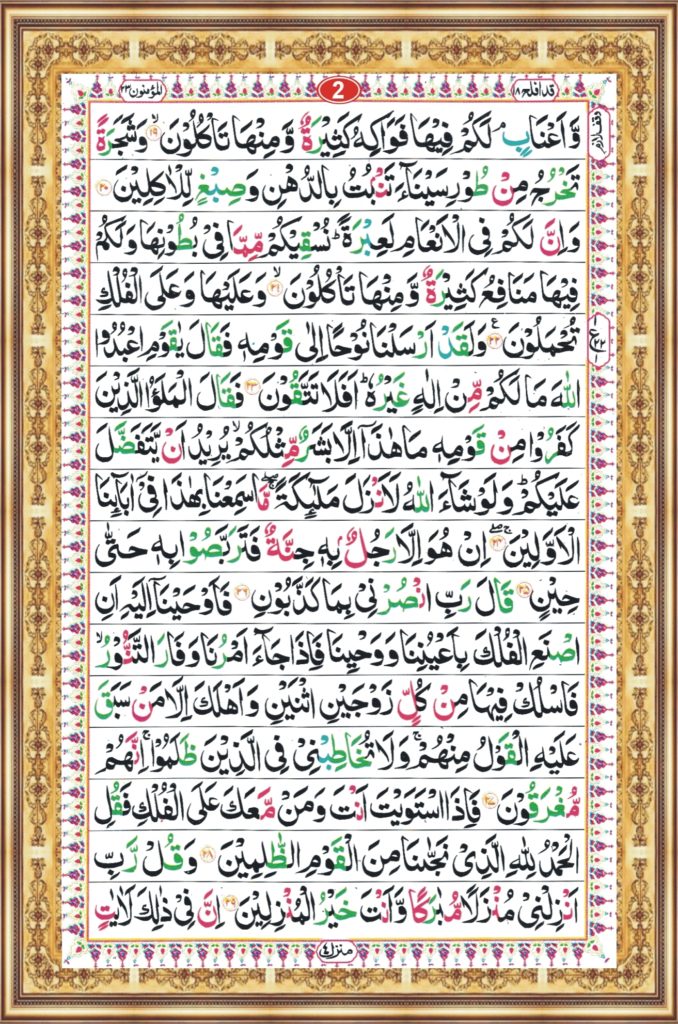 قد افلح ١٨
2
المؤمنون ٢٣
وَّاَعْنَابٍ ۘ لَكُمْ فِيْهَا فَوَاكِهُ كَثِيْرَةٌ وَّمِنْهَا تَاْكُلُوْنَ ۙ‏﴿۱۹﴾ وَشَجَرَةً
وقف لازم
تَخْرُجُ مِنْ طُوْرِ سَيْنَآءَ تَنْۢبُتُ بِالدُّهْنِ وَصِبْغٍ لِّلْاٰكِلِيْنَ ﴿۲۰﴾
وَاِنَّ لَكُمْ فِى الْاَنْعَامِ لَعِبْرَةً ؕ نُسْقِيْكُمْ مِّمَّا فِىْ بُطُوْنِهَا وَلَكُمْ
فِيْهَا مَنَافِعُ كَثِيْرَةٌ وَّمِنْهَا تَاْكُلُوْنَ ۙ‏﴿۲۱﴾ وَعَلَيْهَا وَعَلَى الْفُلْكِ
تُحْمَلُوْنَ ﴿۲۲﴾ وَلَقَدْ اَرْسَلْنَا نُوْحًا اِلٰى قَوْمِهٖ فَقَالَ يٰقَوْمِ اعْبُدُوا
اللّٰهَ مَا لَكُمْ مِّنْ اِلٰهٍ غَيْرُهٗ ؕ اَفَلَا تَتَّقُوْنَ ﴿۲۳﴾ فَقَالَ الْمَلَؤُا الَّذِيْنَ
كَفَرُوْا مِنْ قَوْمِهٖ مَا هٰذَاۤ اِلَّا بَشَرٌ مِّثْلُكُمْ ۙ يُرِيْدُ اَنْ يَّتَفَضَّلَ
عَلَيْكُمْ ؕ وَلَوْ شَآءَ اللّٰهُ لَاَنْزَلَ مَلٰٓئِكَةً ۖۚ مَّا سَمِعْنَا بِهٰذَا فِىْۤ اٰبَآئِنَا
الْاَوَّلِيْنَ ۚ‏﴿۲۴﴾ اِنْ هُوَ اِلَّا رَجُلٌۢ بِهٖ جِنَّةٌ فَتَرَبَّصُوْا بِهٖ حَتّٰى
حِيْنٍ ﴿۲۵﴾ قَالَ رَبِّ انْصُرْنِىْ بِمَا كَذَّبُوْنِ ﴿۲۶﴾ فَاَوْحَيْنَاۤ اِلَيْهِ اَنِ
اصْنَعِ الْفُلْكَ بِاَعْيُنِنَا وَوَحْيِنَا فَاِذَا جَآءَ اَمْرُنَا وَفَارَ التَّنُّوْرُ ۙ
فَاسْلُكْ فِيْهَا مِنْ كُلٍّ زَوْجَيْنِ اثْنَيْنِ وَاَهْلَكَ اِلَّا مَنْ سَبَقَ
عَلَيْهِ الْقَوْلُ مِنْهُمْ ۚ وَلَا تُخَاطِبْنِىْ فِى الَّذِيْنَ ظَلَمُوْا ۚ اِنَّهُمْ
مُّغْرَقُوْنَ ﴿۲۷﴾ فَاِذَا اسْتَوَيْتَ اَنْتَ وَمَنْ مَّعَكَ عَلَى الْفُلْكِ فَقُلِ
الْحَمْدُ لِلّٰهِ الَّذِىْ نَجّٰىنَا مِنَ الْقَوْمِ الظّٰلِمِيْنَ ﴿۲۸﴾ وَقُلْ رَّبِّ
اَنْزِلْنِىْ مُنْزَلًا مُّبٰرَكًا وَّاَنْتَ خَيْرُ الْمُنْزِلِيْنَ ﴿۲۹﴾ اِنَّ فِىْ ذٰلِكَ لَاٰيٰتٍ
منزل ٤